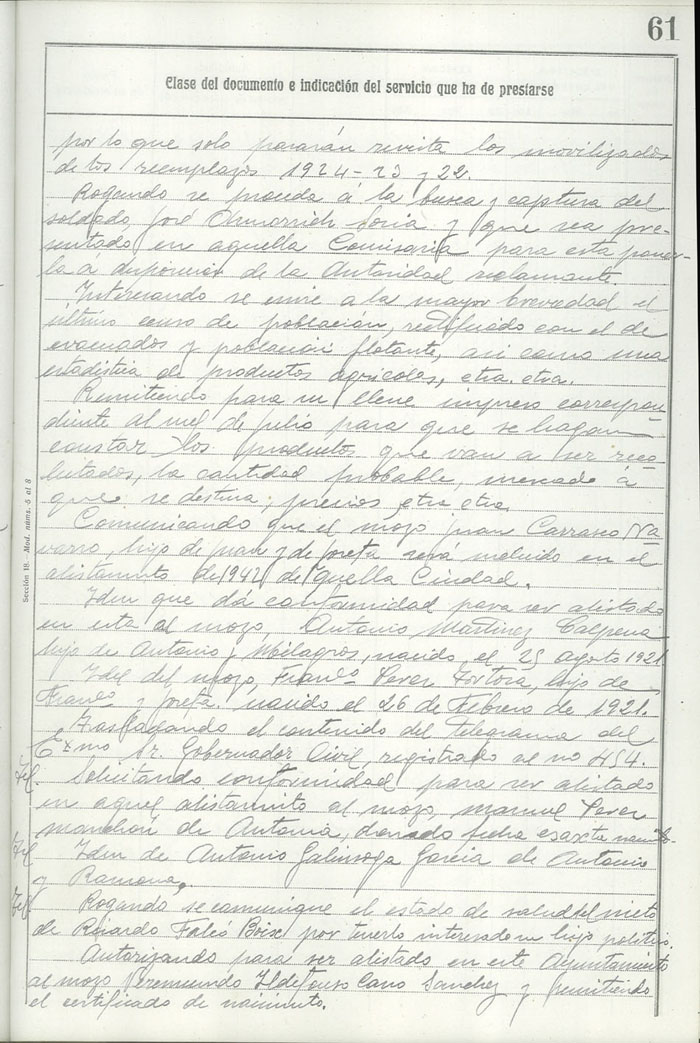 61
Clase del documento e indicación del servicio que ha de prestarse
por lo que solo pasarán revista los movilizados
de los reemplazos 1924-23 y 22.
Rogando se proceda á la busca y captura del
soldado, José Soria y que sea pre-
sentado en aquella Comisaria para esta poner-
la á disposición de la Autoridad reclamante.
Interesando se envie a la mayor brevedad el
último censo de población, rectificado con el de
evacuados y población flotante, asi como una
estadistica de productos agrícolas, etra. etra.
Remitiendo para su llene impreso correspon
diente al mes de julio para que se hagan
constar los productos que van a ser reco
lectados, la cantidad probable, mercado á
que se destina, precios etra etra
Comunicando que el mozo Juan Carrasco Na
varro, hijo de Juan y de Josefa será incluido en el
alistamiento de 1942 de aquella Ciudad.
Idem que dá conformidad para ser alistado
en esta al mozo, Antonio Martinez Calpena
hijo de Antonio y Milagros, nacido el 25 agosto 1921
Idem del mozo, Franco Perez Tortosa, hijo de
Franco y Josefa nacido el 26 de Febrero de 1921.
Trasladando el contenido del Telegrama del
Exmo Sr. Gobernador Civil, registrado al no 454.
Tel. Solicitando conformidad para ser alistado
en aquel alistamiento al mozo, Manuel Perez
Manchón de Antonia, dando fecha exacta nacimto.
Tel Idem de Antonio Galinsoga Garcia de Antonio
y Ramona,
Tel. Rogando se comunique el estado de salud del nieto
de Ricardo Falcó Boix por tenerlo interesado su hijo politico.
Autorizando para ser alistado en este Ayuntamiento
al mozo Bremundo Ildefonso Cano Sanchez y remitiendo
el certificado de nacimiento.
Sección 18.- Mod. núms. 5 al 8